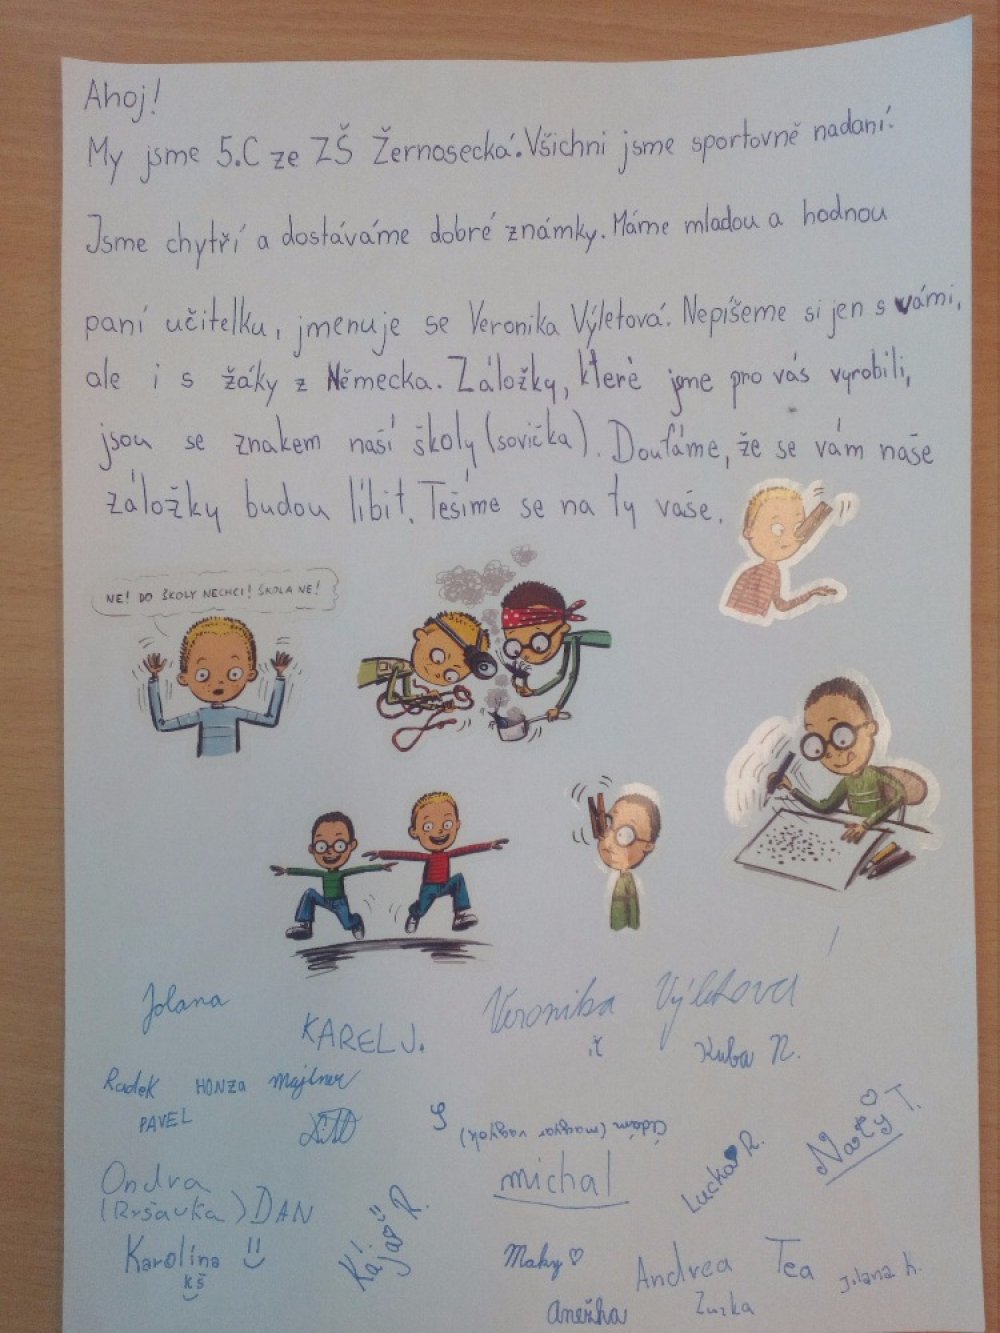 Ahoj!
My jsme 5.C ze ZŠ Žernosecká. Všichni jsme sportovně nadaní.
Jsme chytří a dostáváme dobré známky. Máme mladou a hodnou
paní učitelku, jmenuje se Veronika Výletová. Nepíšeme si jen s vámi,
ale i s žáky z Německa. Záložky, které jsme pro vás vyrobili,
jsou se znakem naší školy (sovička). Doufáme, že se vám naše
záložky budou líbit. Tešíme se na ty vaše.
NE! DO ŠKOLY NECHCI! ŠKOLA NE!
Jolana
Veronika Výletová
KAREL J.
Kuba N.
Radek HONZA Majtner
PAVEL
Ádám (magyar vagyok)
Naty T.
Ondra
(Ryšavka) DAN
michal
Lucka R.
Karolína
KŠ
Kájaš R.
Maky
Andrea
Tea
Jolana K.
Anežka
Zuzka